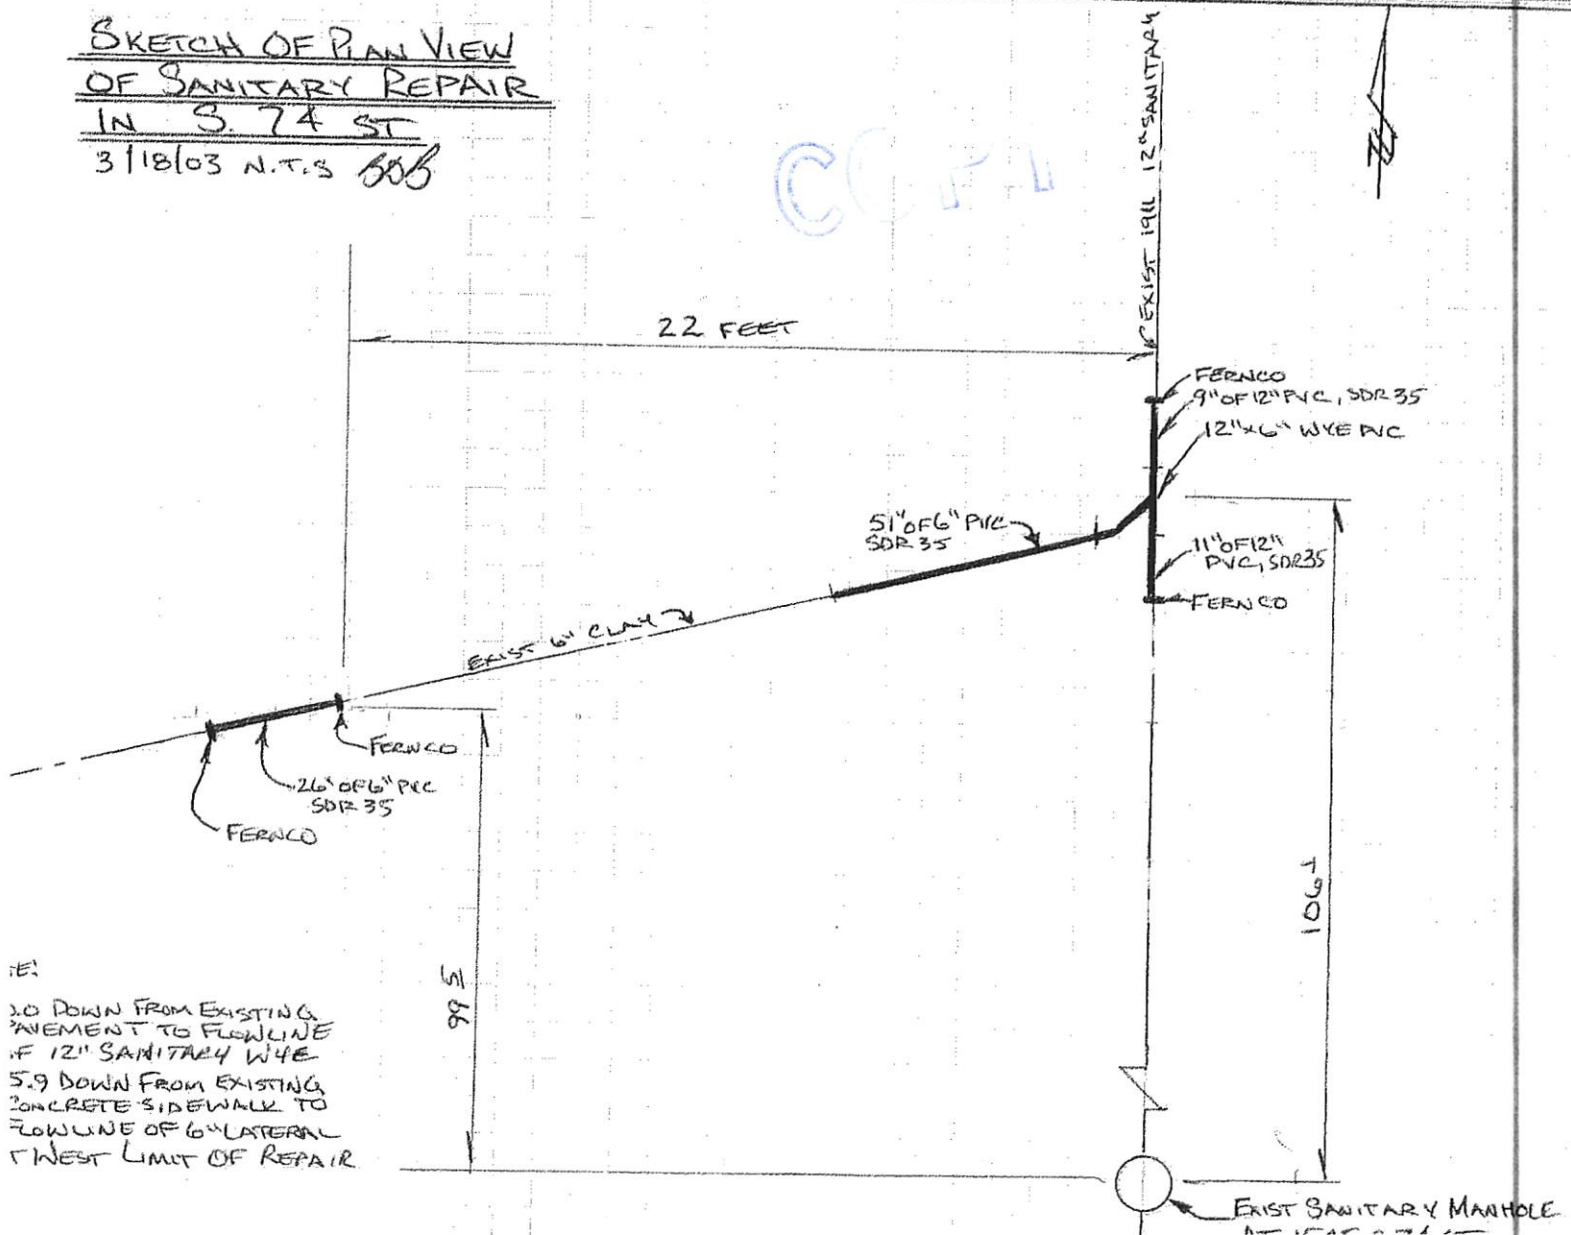 SKETCH OF PLAN VIEW
OF SANITARY REPAIR
IN S. 74 ST
3/18/03 N.T.S
COPY
EXIST 1911 12" SANITARY
22 FEET
FERNCO
9" OF 12" PVC, SDR 35
12"x6" WYE PVC
51" OF 6" PVC
SDR 35
11" OF 12"
PVC, SDR35
FERNCO
EXIST 6" CLAY
FERNCO
26" OF 6" PVC
SDR 35
FERNCO
106.1
99 5
.0 DOWN FROM EXISTING
AVEMENT TO FLOWLINE
F 12" SANITARY WYE
5.9 DOWN FROM EXISTING
CONCRETE SIDEWALK TO
FLOWLINE OF 6" LATERAL
T WEST LIMIT OF REPAIR
EXIST SANITARY MANHOLE